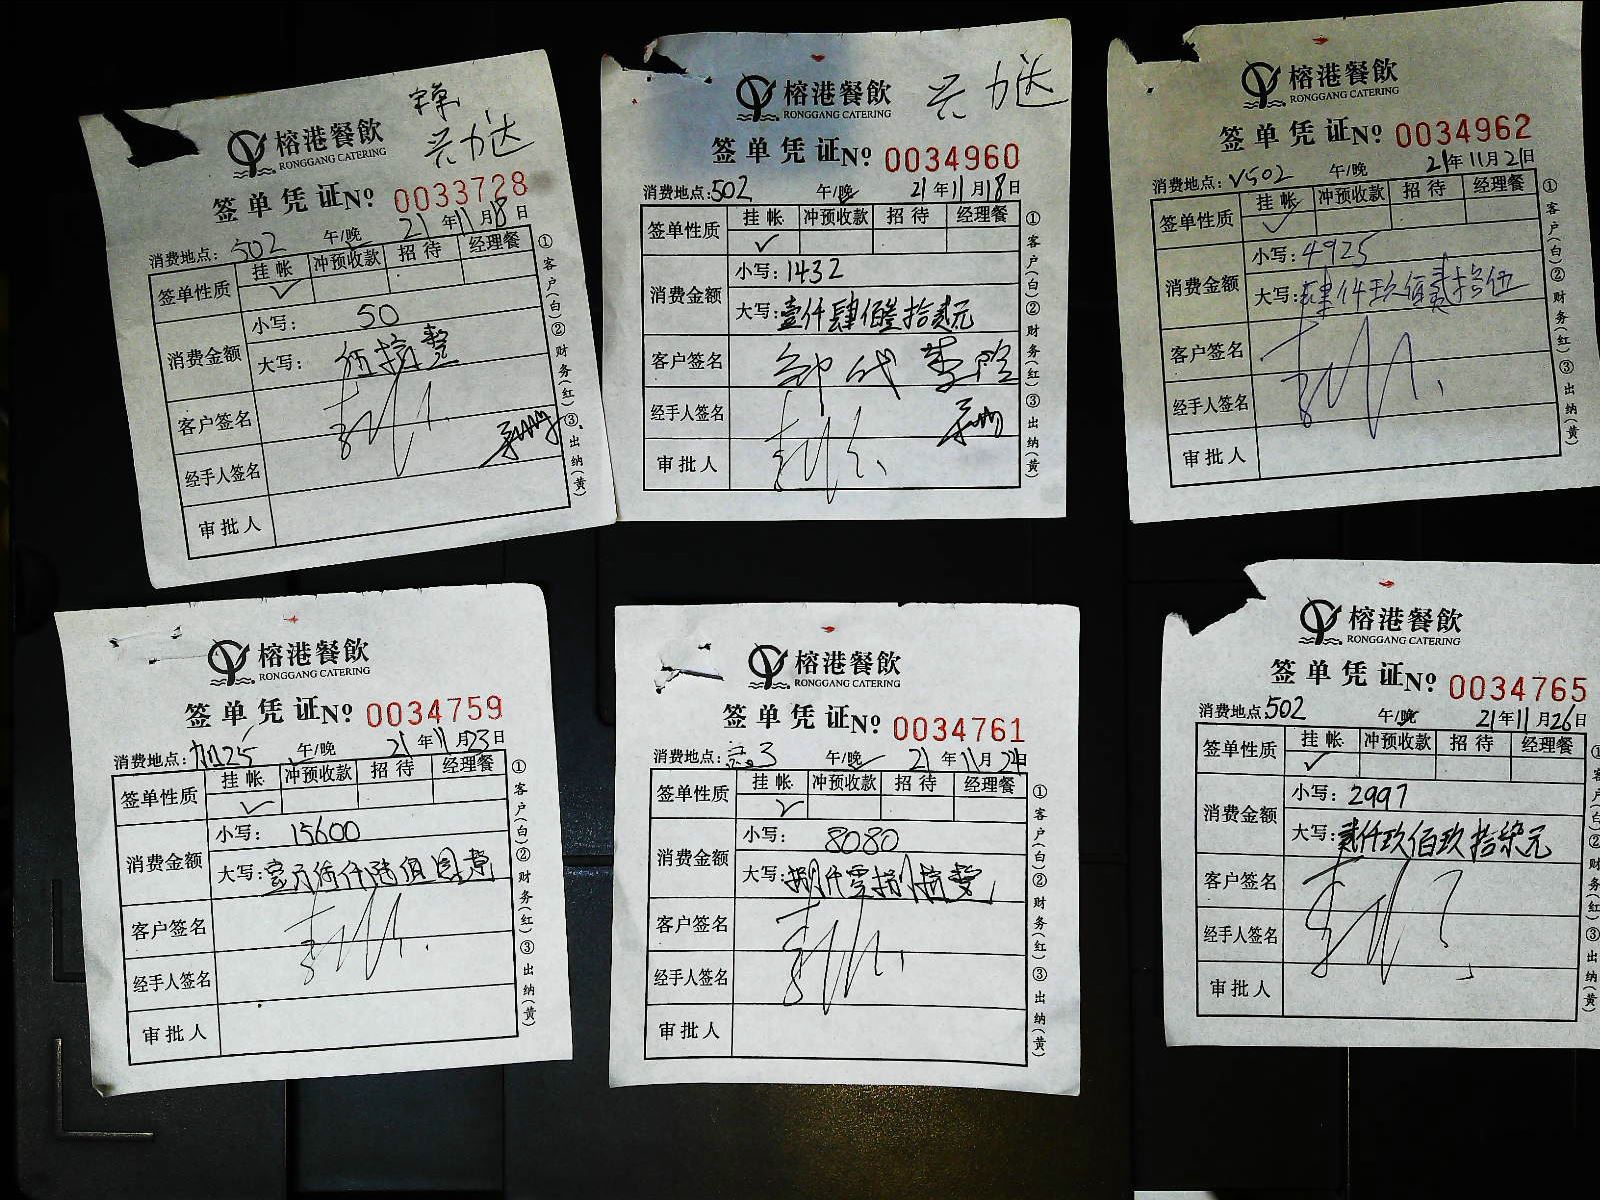 兴力达
榕港餐飲
RONGGANG CATERING
签单凭证№ 0033728
消费地点: 502 午/晚 21年11月18日
签单性质 挂帐 冲预收款 招待 经理餐
✓
消费金额 小写: 50
大写: 伍拾整
客户签名
经手人签名
审批人
①客户(白)②财务(红)③出纳(黄)
兴力达
榕港餐飲
RONGGANG CATERING
签单凭证№ 0034960
消费地点:502 午/晚 21年11月18日
签单性质 挂帐 冲预收款 招待 经理餐
✓
消费金额 小写: 1432
大写: 壹仟肆佰叁拾贰元
客户签名
经手人签名
审批人
①客户(白)②财务(红)③出纳(黄)
榕港餐飲
RONGGANG CATERING
签单凭证№ 0034962
消费地点: V502 午/晚 21年11月21日
签单性质 挂帐 冲预收款 招待 经理餐
✓
消费金额 小写: 4925
大写: 肆仟玖佰贰拾伍
客户签名
经手人签名
审批人
①客户(白)②财务(红)③出纳(黄)
榕港餐飲
RONGGANG CATERING
签单凭证№ 0034759
消费地点: 午/晚 21年11月23日
签单性质 挂帐 冲预收款 招待 经理餐
✓
消费金额 小写: 15600
大写: 壹万伍仟陆佰
客户签名
经手人签名
审批人
①客户(白)②财务(红)③出纳(黄)
榕港餐飲
RONGGANG CATERING
签单凭证№ 0034761
消费地点: 午/晚 21年11月24日
签单性质 挂帐 冲预收款 招待 经理餐
✓
消费金额 小写: 8080
大写: 捌仟零捌拾整
客户签名
经手人签名
审批人
①客户(白)②财务(红)③出纳(黄)
榕港餐飲
RONGGANG CATERING
签单凭证№ 0034765
消费地点 502 午/晚 21年11月26日
签单性质 挂帐 冲预收款 招待 经理餐
✓
消费金额 小写: 2997
大写: 贰仟玖佰玖拾柒元
客户签名
经手人签名
审批人
①客户(白)②财务(红)③出纳(黄)